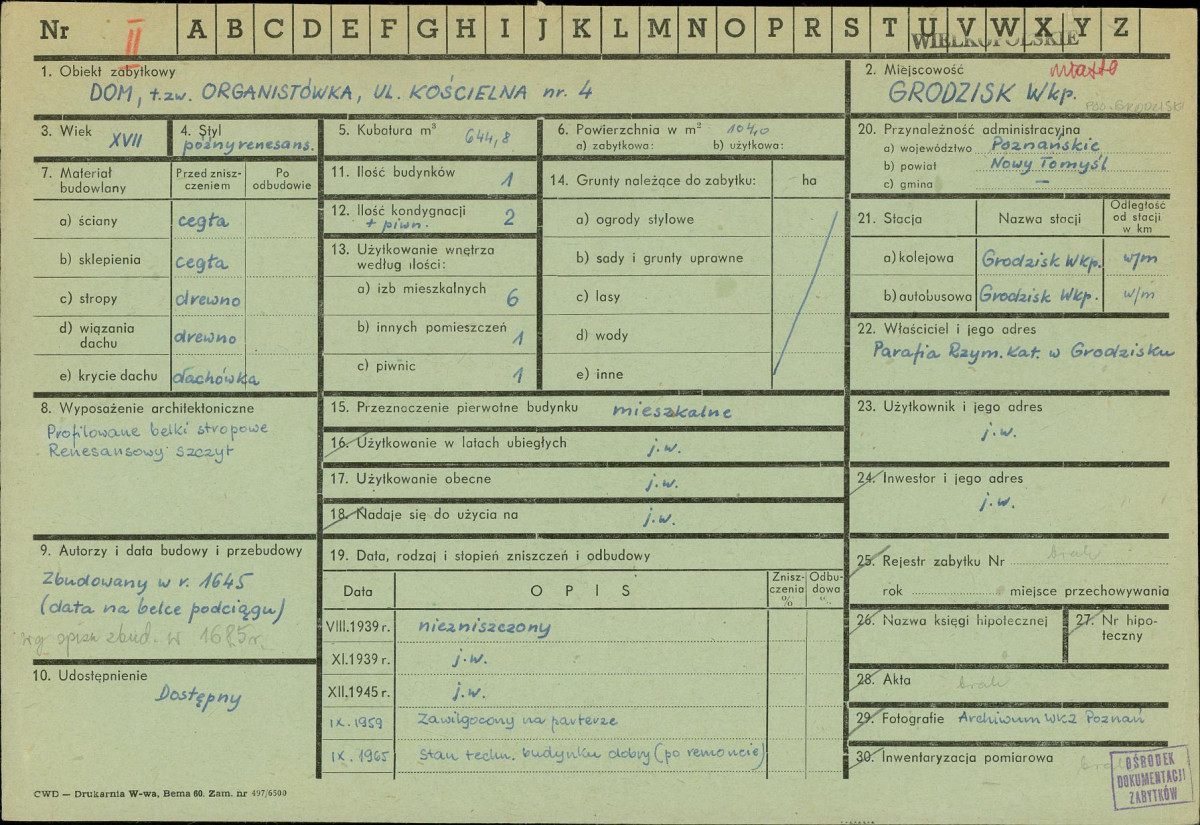 Nr II A B C D E F G H I J K L M N O P R S T U V W X Y Z
WIELKOPOLSKIE
1. Obiekt zabytkowy
DOM, t.zw. ORGANISTÓWKA, UL. KOŚCIELNA nr. 4
2. Miejscowość miasto
GRODZISK Wkp.
pow. GRODZISK
3. Wiek
XVII
4. Styl
późnyrenesans.
5. Kubatura m³
644,8
6. Powierzchnia w m² 104,0
a) zabytkowa: b) użytkowa:
7. Materiał budowlany
Przed znisz-
czeniem
Po
odbudowie
a) ściany cegła
b) sklepienia cegła
c) stropy drewno
d) wiązania
dachu drewno
e) krycie dachu dachówka
8. Wyposażenie architektoniczne
Profilowane belki stropowe
Renesansowy szczyt
9. Autorzy i data budowy i przebudowy
Zbudowany w r. 1645
(data na belce podciągu)
wg opisu zbud. w 1685 r.
10. Udostępnienie
Dostępny
11. Ilość budynków 1
12. Ilość kondygnacji 2
+ piwn.
13. Użytkowanie wnętrza
według ilości:
a) izb mieszkalnych 6
b) innych pomieszczeń 1
c) piwnic 1
14. Grunty należące do zabytku: ha
a) ogrody stylowe
b) sady i grunty uprawne
c) lasy
d) wody
e) inne
15. Przeznaczenie pierwotne budynku mieszkalne
16. Użytkowanie w latach ubiegłych j.w.
17. Użytkowanie obecne j.w.
18. Nadaje się do użycia na j.w.
19. Data, rodzaj i stopień zniszczeń i odbudowy
Data
OPIS
Znisz-
czenia
%
Odbu-
dowa
%
VIII.1939 r. niezniszczony
XI.1939 r. j.w.
XII.1945 r. j.w.
IX.1959 Zawilgocony na parterze
IX.1965 Stan techn. budynku dobry (po remoncie)
20. Przynależność administracyjna
a) województwo Poznańskie
b) powiat Nowy Tomyśl
c) gmina —
21. Stacja
Nazwa stacji
Odległość
od stacji
w km
a) kolejowa Grodzisk Wkp. w/m
b) autobusowa Grodzisk Wkp. w/m
22. Właściciel i jego adres
Parafia Rzym. Kat. w Grodzisku
23. Użytkownik i jego adres
j.w.
24. Inwestor i jego adres
j.w.
25. Rejestr zabytku Nr brak
rok miejsce przechowywania
26. Nazwa księgi hipotecznej
27. Nr hipo-
teczny
28. Akta brak
29. Fotografie Archiwum WKZ Poznań
30. Inwentaryzacja pomiarowa
brak
OŚRODEK
DOKUMENTACJI
ZABYTKÓW
CWD — Drukarnia W-wa, Bema 60. Zam. nr 497/6500